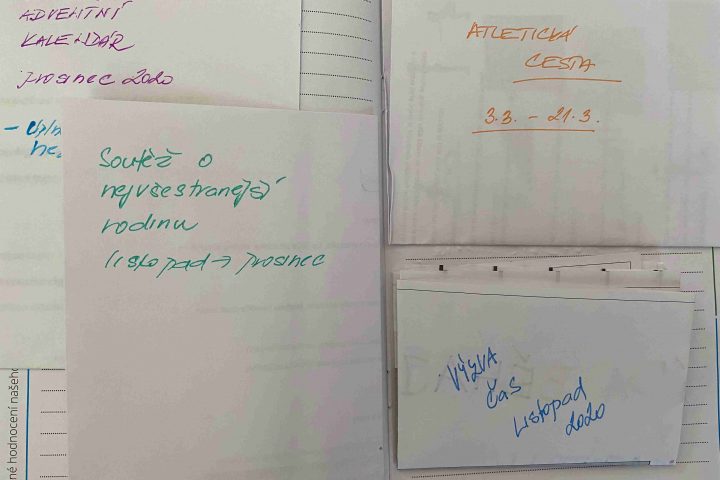 ADVENTNÍ
KALENDÁŘ
prosinec 2020
Soutěž o
nejvšestranější
rodinu
listopad → prosinec
ATLETICKÁ
CESTA
3.3. - 21.3.
VÝZVA
ČAS
Listopad
2020
né hodnocení našeho